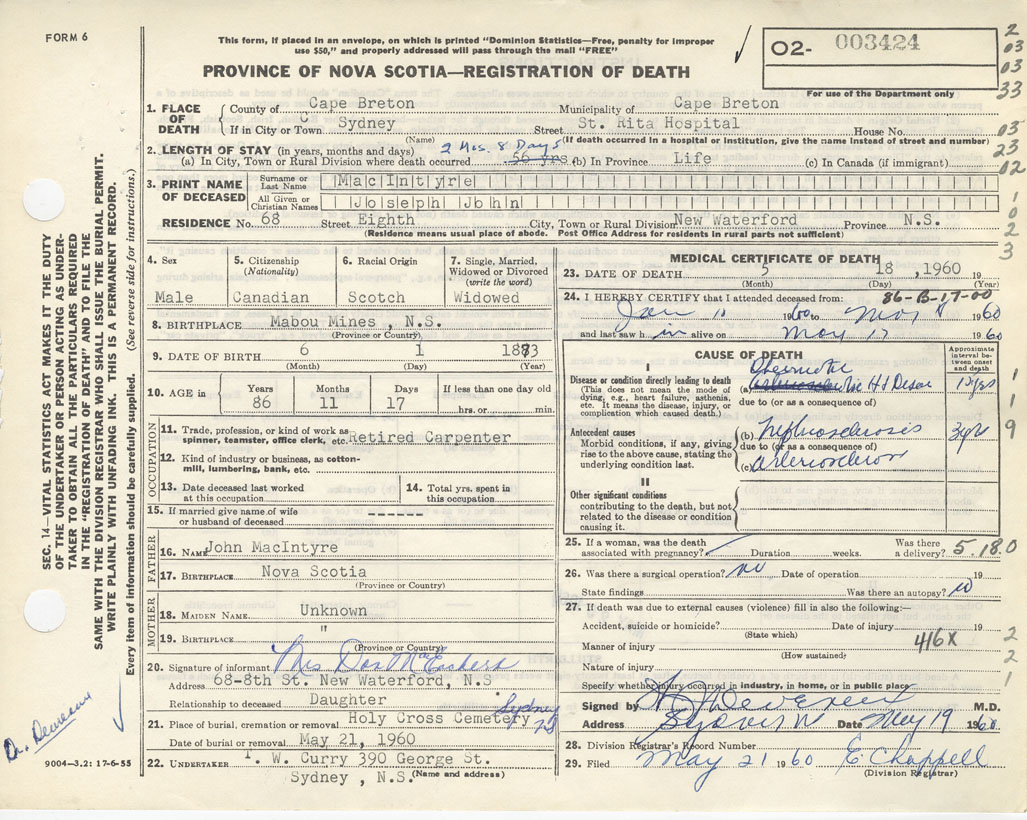 FORM 6
This form, if placed in an envelope, on which is printed "Dominion Statistics—Free, penalty for improper
use $50," and properly addressed will pass through the mail "FREE"
PROVINCE OF NOVA SCOTIA—REGISTRATION OF DEATH
O2- 003424
For use of the Department only
2
03
03
33
03
23
02
1
0
2
3
1. PLACE OF DEATH
County of Cape Breton Municipality of Cape Breton
If in City or Town Sydney Street St. Rita Hospital House No.
(Name) (If death occurred in a hospital or institution, give the name instead of street and number)
2. LENGTH OF STAY (in years, months and days) 2 Mos. 8 Days
(a) In City, Town or Rural Division where death occurred 56 yrs (b) In Province Life (c) In Canada (if immigrant)
3. PRINT NAME OF DECEASED
Surname or Last Name MacIntyre
All Given or Christian Names Joseph John
RESIDENCE No. 68 Street Eighth City, Town or Rural Division New Waterford Province N.S.
(Residence means usual place of abode. Post Office Address for residents in rural parts not sufficient)
4. Sex
Male
5. Citizenship (Nationality)
Canadian
6. Racial Origin
Scotch
7. Single, Married, Widowed or Divorced (write the word)
Widowed
8. BIRTHPLACE Mabou Mines , N.S.
(Province or Country)
9. DATE OF BIRTH 6 1 1873
(Month) (Day) (Year)
10. AGE in
Years Months Days If less than one day old
86 11 17 hrs. or min.
OCCUPATION
11. Trade, profession, or kind of work as spinner, teamster, office clerk, etc. Retired Carpenter
12. Kind of industry or business, as cotton-mill, lumbering, bank, etc.
13. Date deceased last worked at this occupation
14. Total yrs. spent in this occupation
15. If married give name of wife or husband of deceased ------
FATHER
16. NAME John MacIntyre
17. BIRTHPLACE Nova Scotia
(Province or Country)
MOTHER
18. MAIDEN NAME Unknown
19. BIRTHPLACE "
(Province or Country)
20. Signature of informant Mrs Dos
Address 68-8th St. New Waterford, N.S
Relationship to deceased Daughter
21. Place of burial, cremation or removal Holy Cross Cemetery Sydney NS
Date of burial or removal May 21, 1960
22. UNDERTAKER T. W. Curry 390 George St.
Sydney , N.S. (Name and address)
MEDICAL CERTIFICATE OF DEATH
23. DATE OF DEATH 5 18 ,1960 19
(Month) (Day) (Year)
86-B-17-00
24. I HEREBY CERTIFY that I attended deceased from:
Jan 1960 to May 1960
and last saw h im alive on May 17 1960
CAUSE OF DEATH
Approximate interval between onset and death
I
Disease or condition directly leading to death
(This does not mean the mode of dying, e.g., heart failure, asthenia, etc. It means the disease, injury, or complication which caused death.)
(a)
due to (or as a consequence of)
Antecedent causes
Morbid conditions, if any, giving rise to the above cause, stating the underlying condition last.
(b) Nephrosclerosis
due to (or as a consequence of)
(c) Arteriosclerosis
II
Other significant conditions
contributing to the death, but not related to the disease or condition causing it.
1
1
9
25. If a woman, was the death associated with pregnancy? Duration weeks. Was there a delivery? 5.18.0
26. Was there a surgical operation? no Date of operation 19
State findings Was there an autopsy? no
27. If death was due to external causes (violence) fill in also the following:—
Accident, suicide or homicide? Date of injury 19
(State which)
Manner of injury 416X
(How sustained)
Nature of injury
Specify whether injury occurred in industry, in home, or in public place
2
2
1
Signed by M.D.
Address Sydney NS Date May 19 1960
28. Division Registrar's Record Number
29. Filed May 21 1960 E. Chappell
(Division Registrar)
SEC. 14—VITAL STATISTICS ACT MAKES IT THE DUTY
OF THE UNDERTAKER OR PERSON ACTING AS UNDER-
TAKER TO OBTAIN ALL THE PARTICULARS REQUIRED
IN THE "REGISTRATION OF DEATH" AND TO FILE THE
SAME WITH THE DIVISION REGISTRAR WHO SHALL ISSUE THE BURIAL PERMIT.
WRITE PLAINLY WITH UNFADING INK. THIS IS A PERMANENT RECORD.
Every item of information should be carefully supplied. (See reverse side for instructions.)
9004—3.2: 17-6-55